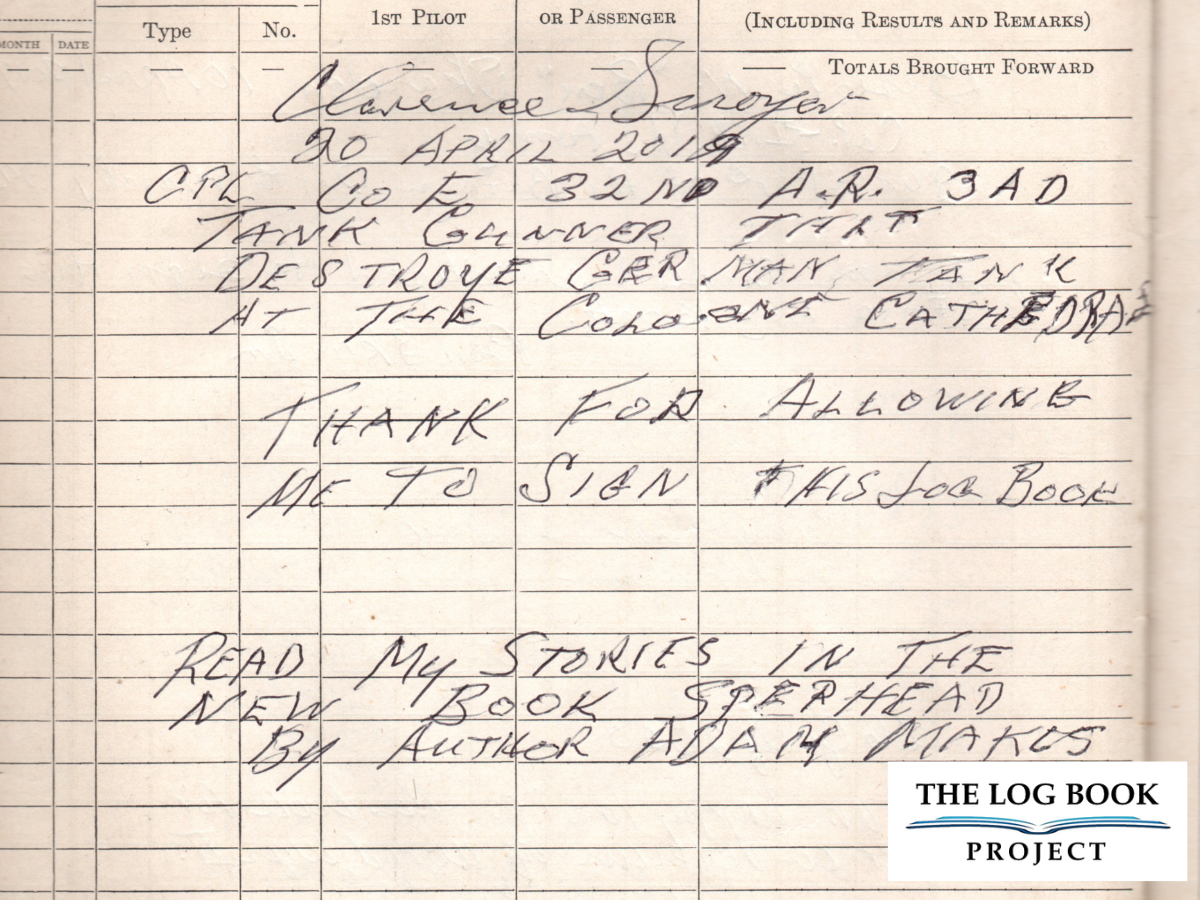 1ST PILOT OR PASSENGER (INCLUDING RESULTS AND REMARKS)
MONTH DATE Type No.
— — — — — — — TOTALS BROUGHT FORWARD
Clarence Smoyer
20 APRIL 2019
CPL CO E 32ND A.R. 3AD
TANK GUNNER THAT
DESTROYE GERMAN TANK
AT THE COLOGNE CATHEDRAL
THANK FOR ALLOWING
ME TO SIGN THIS LOG BOOK
READ MY STORIES IN THE
NEW BOOK SPERHEAD
BY AUTHOR ADAM MAKOS
THE LOG BOOK
PROJECT